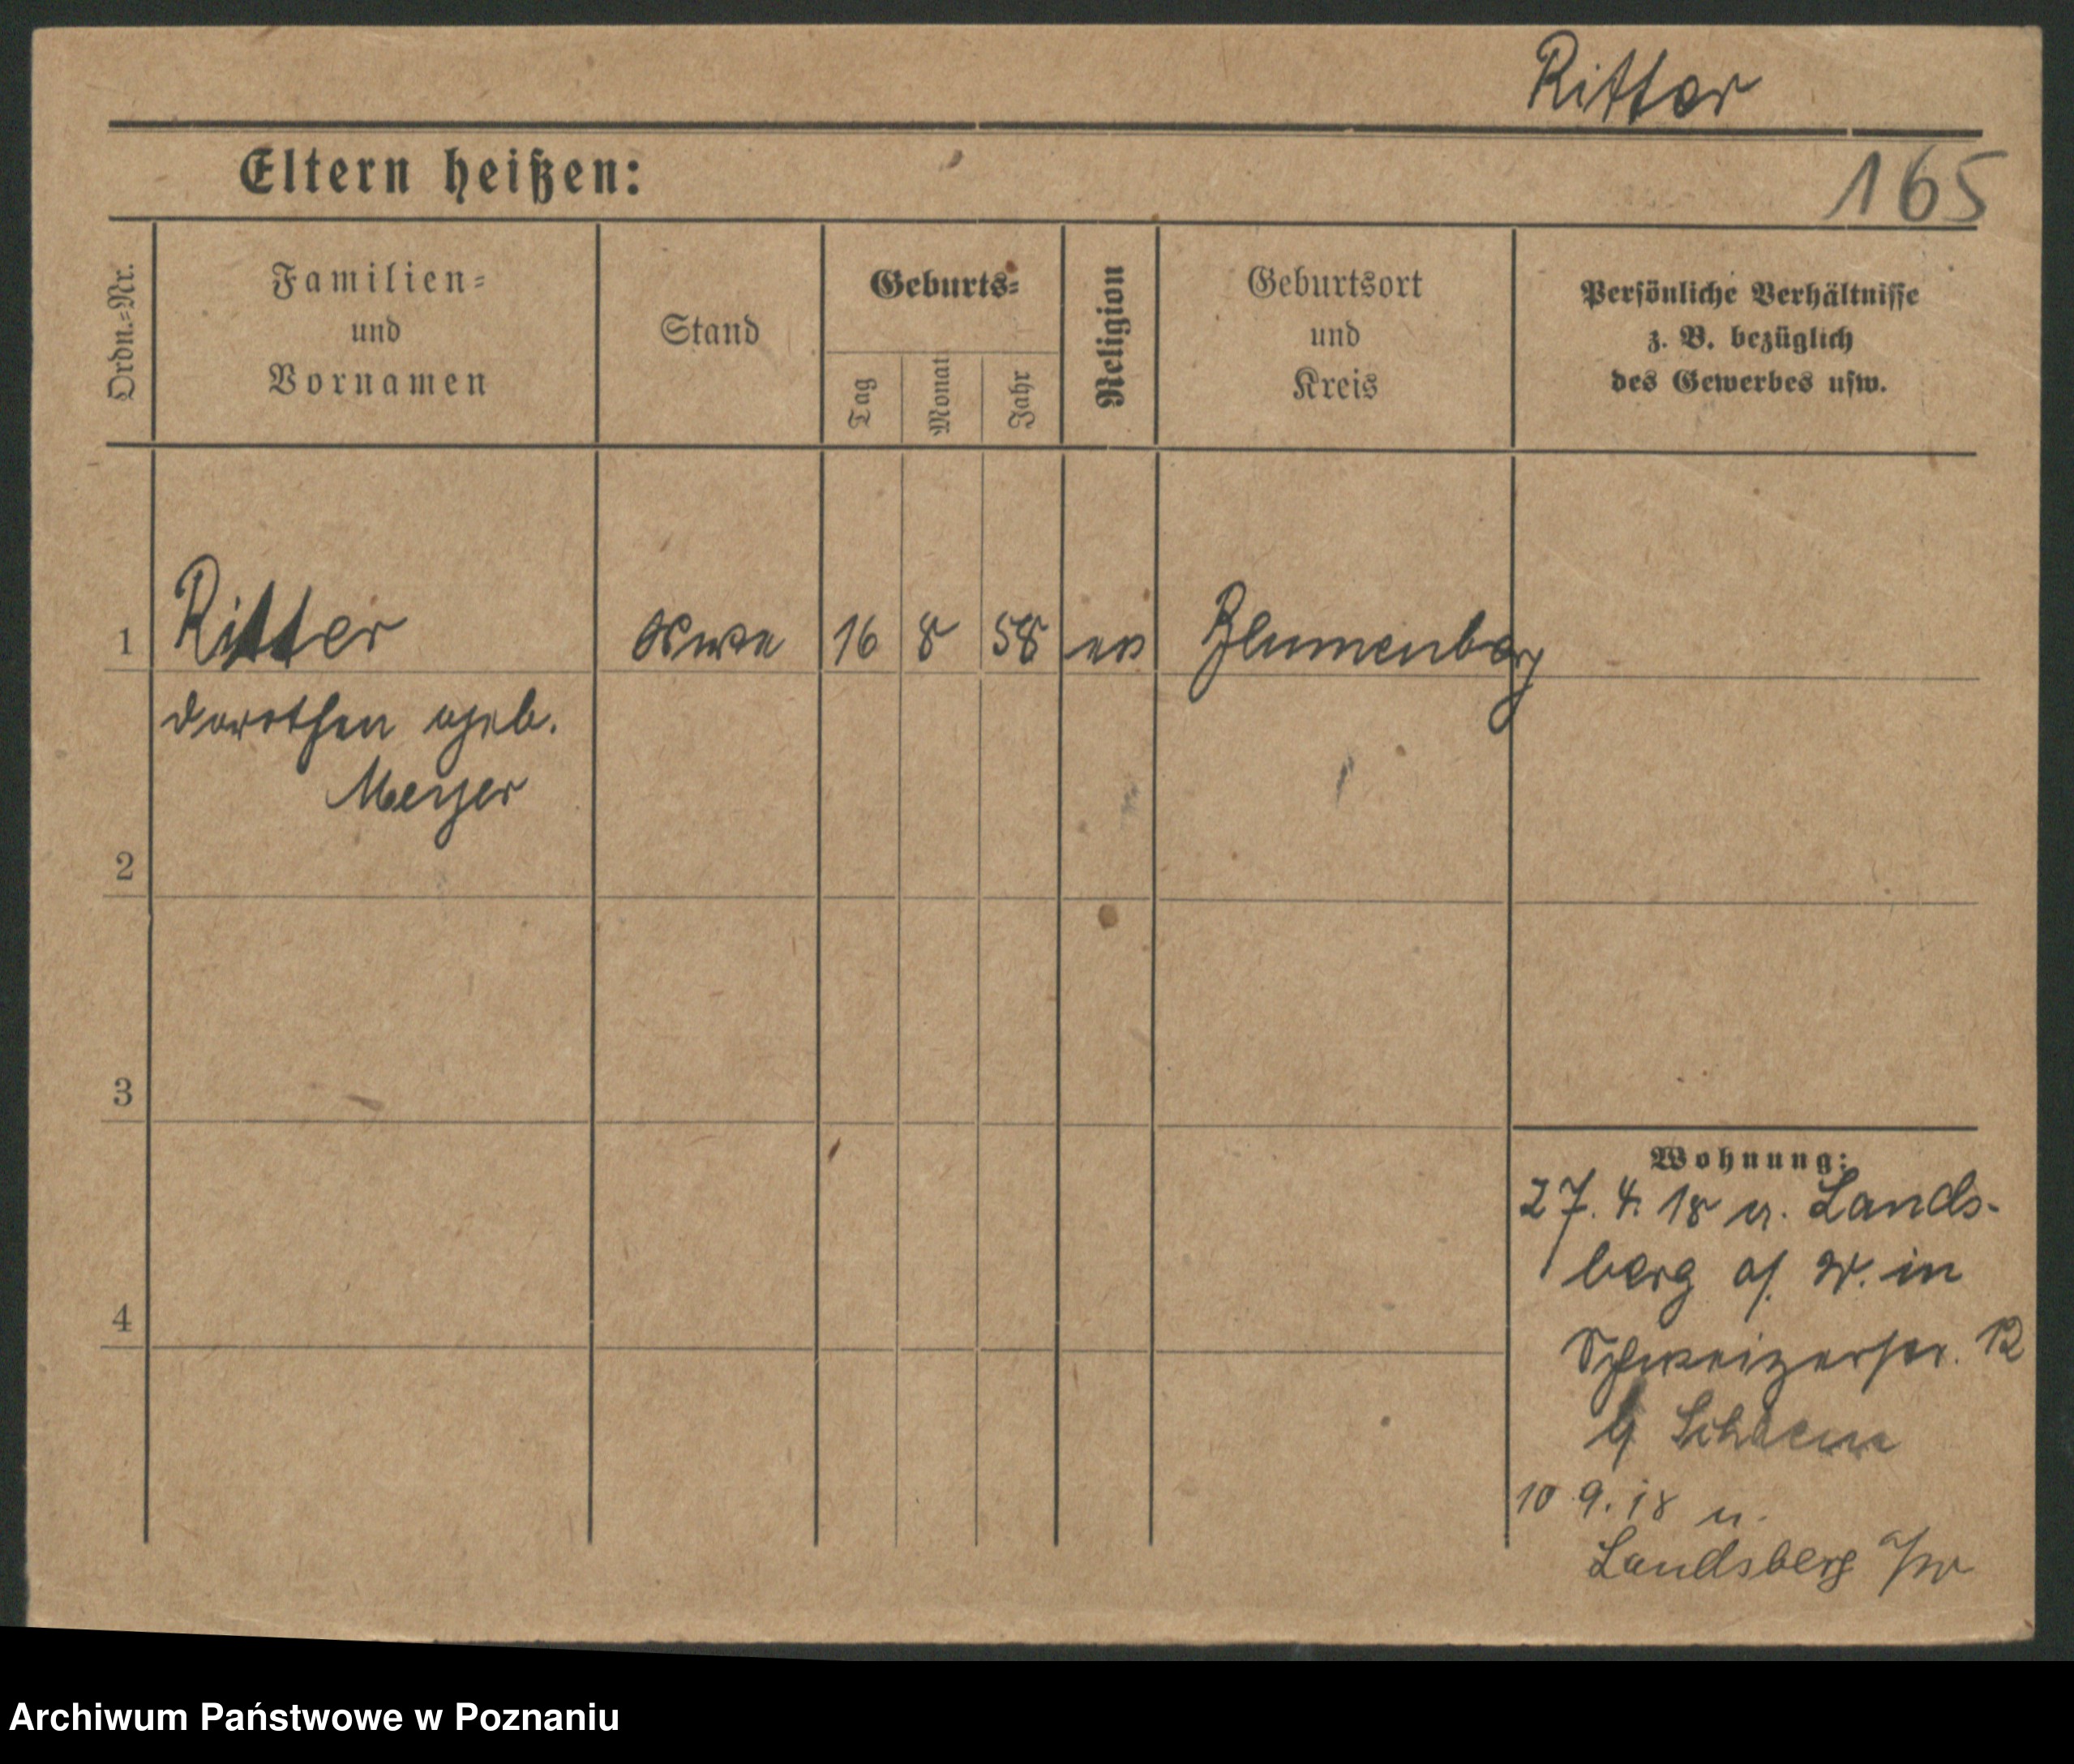 Ritter
165
Eltern heißen:
Ordn.-Nr.
Familien-
und
Vornamen
Stand
Geburts-
Tag
Monat
Jahr
Religion
Geburtsort
und
Kreis
Persönliche Verhältnisse
z. B. bezüglich
des Gewerbes usw.
1 Ritter Wwe 16 8 58 ev Blumenberg
Dorothea geb.
Meyer
2
3
4
Wohnung:
27. 4. 18 v. Lands-
berg a/. W. in
Schweizerstr. 12
b/
10 9. 18 n.
Landsberg a/W
Archiwum Państwowe w Poznaniu